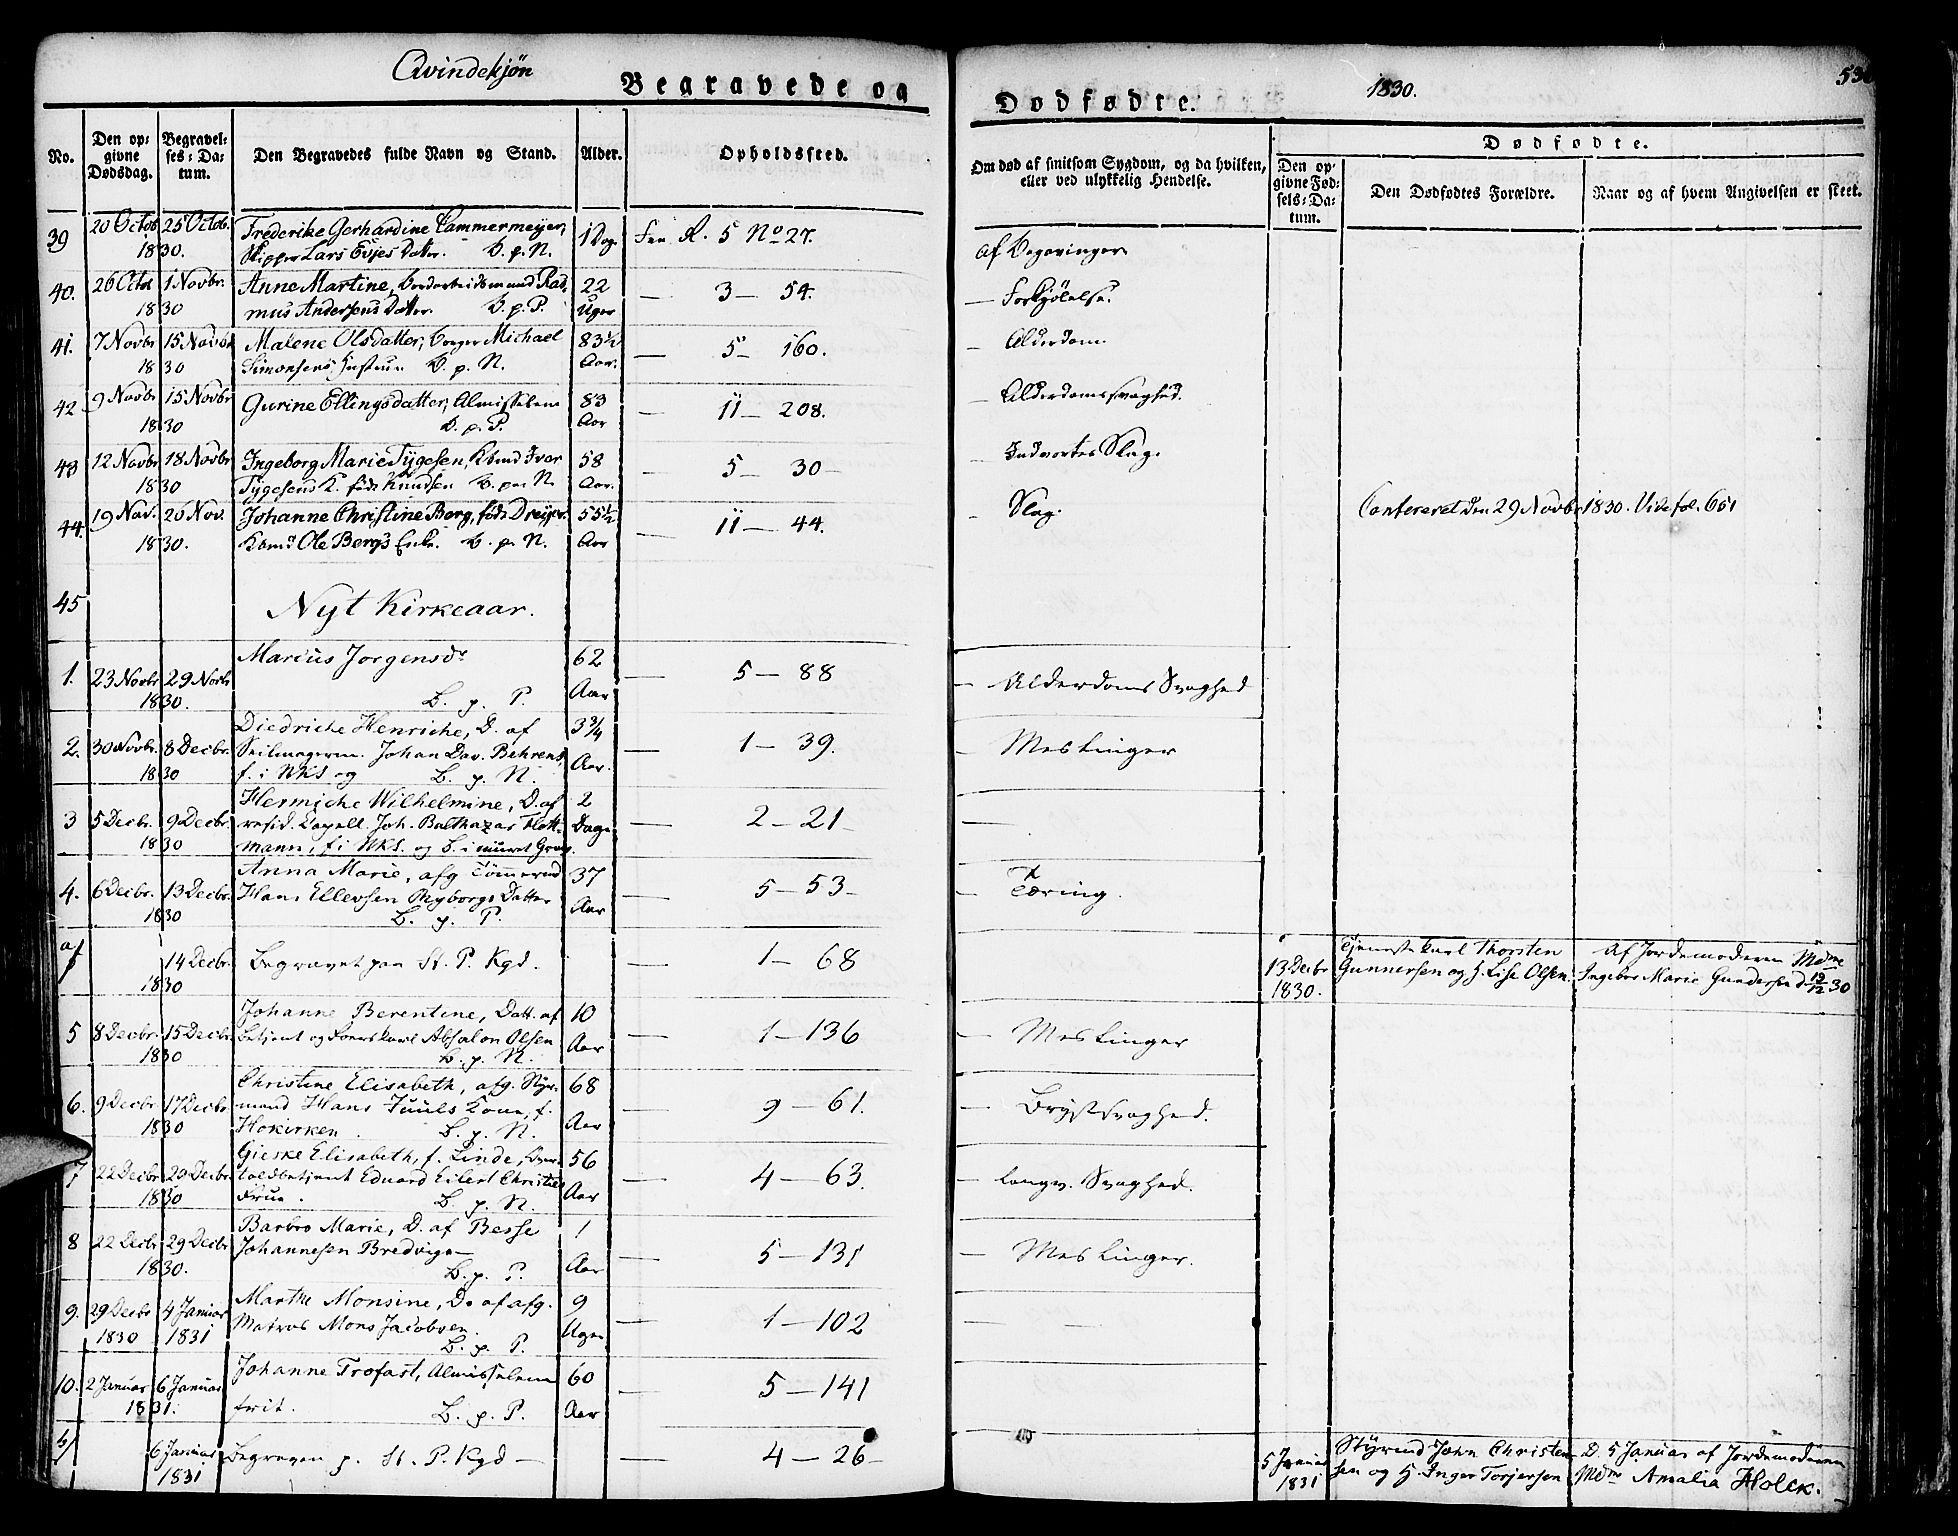 Qvindekjøn
Begravede og
Dødfødte.
1830.
No.
Den opgivne Dødsdag.
Begravelses-Datum.
Den Begravedes fulde Navn og Stand.
Alder.
Opholdssted.
Om død af smitsom Sygdom, og da hvilken,
eller ved ulykkelig Hendelse.
Dødfødte.
Den opgivne Fødsels-Datum.
Den Dødfødtes Forældre.
Naar og af hvem Angivelsen er skeet.
39 20 Octob 25 Octob. Frederike Gerhardine Cammermeijer,
1830. Skipper Lars Evjes Datter. B. p. N. 1 Dag R. 5 No 27. af
40. 26 Octob 1 Novbr. Anne Martine, Ras-
1830 mus Andersens Datter. B. p. P. 22 Uger — 3 — 54. — Forkjølelse.
41. 7 Novbr 15 Novbr Malene Olsdatter, borger Michael
1830 Simonsens Hustrue B. p. N. 83½ Aar. — 5 — 160. — Alderdom.
42 9 Novbr 15 Novbr Gurine Ellingsdatter, Almisselem
1830 B. p. P. 83 Aar — 11 — 208. — Alderdomssvaghed.
43 12 Novbr 18 Novbr Ingeborg Marie Tygesen, Kbmd Iver
1830 Tygesens K. født Knudsen B. paa N. 58 Aar. — 5 — 30 — — Indvortes Slag.
44. 19 Nov. 26 Nov. Johanne Christine Berg, født Dreijer.
1830. Kbmd Ole Bergs Enke. B. p. N. 55½ Aar — 11 — 44. — Slag. Confereret den 29 Novbr 1830. Vide fol. 651
45 Nyt Kirkeaar.
1. 23 Novbr 29 Novbr Jorgensdr
1830. B. p. P. 62 Aar — 5 — 88 — Alderdoms Svaghed
2. 30 Novbr. 8 Decbr. Diedriche Henriche, D. af
Seilmagerm. Johan Dav. Behrens,
1830 f. i NKS og B. p. N. 3¾ Aar. — 1 — 39. — Meslinger
3 5 Decbr. 9 Decbr. Hermiche Wilhelmine, D. af
resid. Capell. Joh. Balthazar Flott-
1830 mann, f. i NKS. og B. i muret Grav. 2 Dage — 2 — 21 — —
4. 6 Decbr. 13 Decbr. Anna Marie, afg Tömmermd
Hans Ellevsen Nyborgs Datter
1830 B. p. P. 37 Aar — 5 — 53 — — Tæring.
a/ 14 Decbr. 1830 Begravet paa St. P. Kgd. — 1 — 68 13 Decbr 1830. Tjenestekarl Thorsten Af Jordemoderen Mdme
Gunnersen og H. Lise Olsen. Ingebor Marie Gundersen d 19/12 30
5 8 Decbr. 15 Decbr. Johanne Berentine, Datt. af
Betjent og Absalon Olsen
1830 B. p. N. 10 Aar — 1 — 136 — Meslinger
6. 9 Decbr 17 Decbr Christine Elisabeth, afg. Styr-
mand Hans Juuls Kone, f.
1830 Hokirken. B. p. N. 68 Aar — 9 — 61. — Brystsvaghed.
7 22 Decbr 29 Decbr. Gieske Elisabeth, f. Linde, Over-
toldbetjent Eduard Eilert Christies
1830 Frue. B. p. N. 56 Aar — 4 — 63. — langv. Svaghed.
8 22 Decbr 29 Decbr Barbro Marie, D. af Besse
Johannesen Bredvig —
1830. B. p. P. 1 Aar — 5 — 131 — Meslinger.
9. 29 Decbr 1830 4 Januar 1831 Marthe Monsine, D. af afg.
Matros Mons Jacobsen.
B. p. P. 9 Uger — 1 — 102 —
10. 2 Januar 6 Januar Johanne Trofast, Almisselem
1831. frit. B. p. P. 60 Aar — 5 — 141
b/ 6 Januar 1831 Begraven p. St. P. Kgd — — 4 — 26 — 5 Januar 1831 Styrmd John Christen- D. 5 Januar af Jordemoderen
sen og H. Inger Torjersen Mdme Amalia Holck.